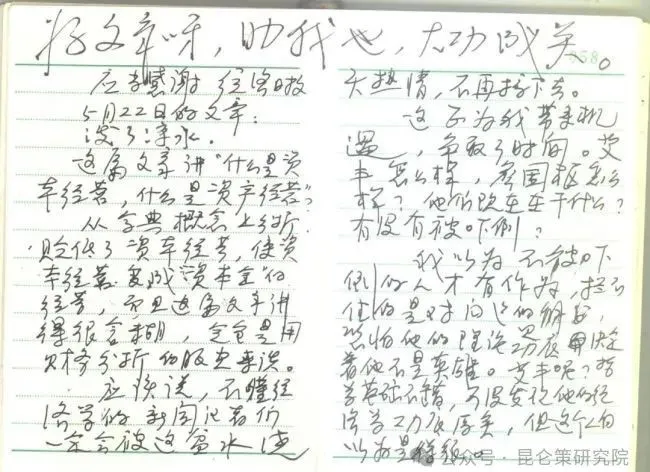 好文章呀，助我也，大功成矣。
058
应当感谢经济日报
5月22日的文章：
泼了凉水。
这篇文章讲“什么是资
本经营，什么是资产经营？”
从字典概念上分析
贬低了资本经营，使资
本经营变成“资本金”的
经营，而且这篇文章讲
得很含糊，完全是用
价格分析的眼光来谈。
应该说，不懂经
济学的新闻记者们
一定会被这盆水浇
头热情，不再搞下去。
这正为我带来机
遇，争取了时间。艾
丰怎么样，蔡国权怎么
样？他们现在在干什么？
有没有被吓倒？
我以为不被吓
倒的人才有作为，
的是对问题的
恐怕他的理论功底决定
着他不是英雄。艾丰呢？哲
学基础不错，可没发现他的经
济学功底厚实，但这个人自
以为是
公众号·昆仑策研究院